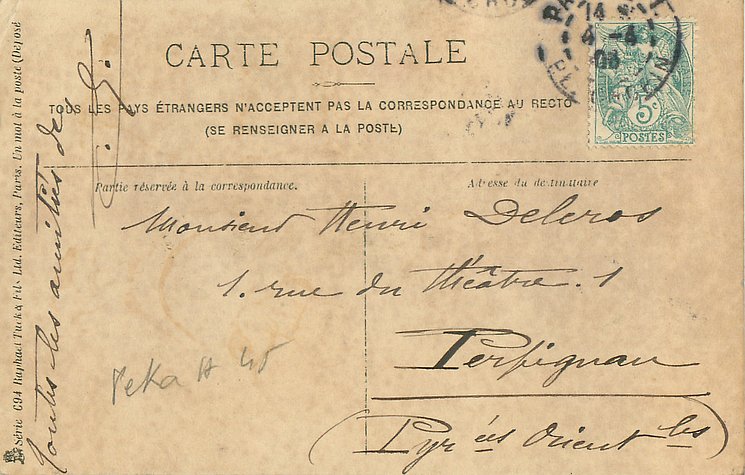 CARTE POSTALE
TOUS LES PAYS ÉTRANGERS N'ACCEPTENT PAS LA CORRESPONDANCE AU RECTO
(SE RENSEIGNER A LA POSTE)
Partie réservée à la correspondance.
Adresse du destinataire
Monsieur Henri Delcros
1. rue du Théâtre. 1
Perpignan
(Pyr ées Orient les)
Toutes les amitiés de
Série 694 Raphael Tuck & Fils Ltd. Editeurs, Paris. Un mot à la poste (Déposé
14
4-4
5c
POSTES